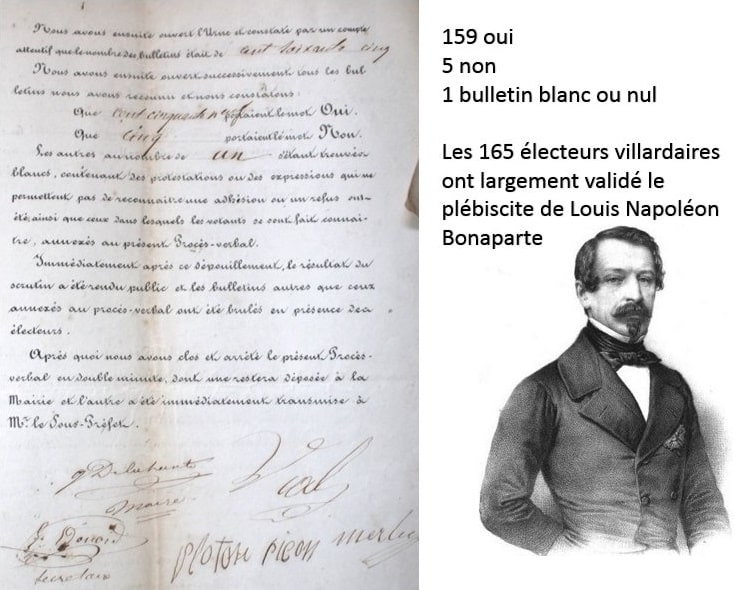 Nous avons ensuite ouvert l'Urne et constaté par un compte
attentif que le nombre des bulletins était de cent soixante cinq
Nous avons ensuite ouvert successivement tous les bul-
letins nous avons reconnu et nous constatons:
Que cent cinquante portaient le mot Oui.
Que cinq portaient le mot Non.
Les autres au nombre de un étant trouvés
blancs, contenant des protestations ou des expressions qui ne
permettent pas de reconnaître une adhésion ou un refus ont
été, ainsi que ceux dans lesquels les votants se sont fait connaî-
tre, annexés au présent Procès-verbal.
Immédiatement après ce dépouillement, le résultat du
scrutin a été rendu public et les bulletins autres que ceux
annexés au procès-verbal ont été brulés en présence des
électeurs.
Après quoi nous avons clos et arrêté le présent Procès-
verbal en double minute, dont une restera déposée à la
Mairie et l'autre a été immédiatement transmise à
Mr. le Sous-Préfet.
Vial
Maire
secretaire
159 oui
5 non
1 bulletin blanc ou nul
Les 165 électeurs villardaires
ont largement validé le
plébiscite de Louis Napoléon
Bonaparte